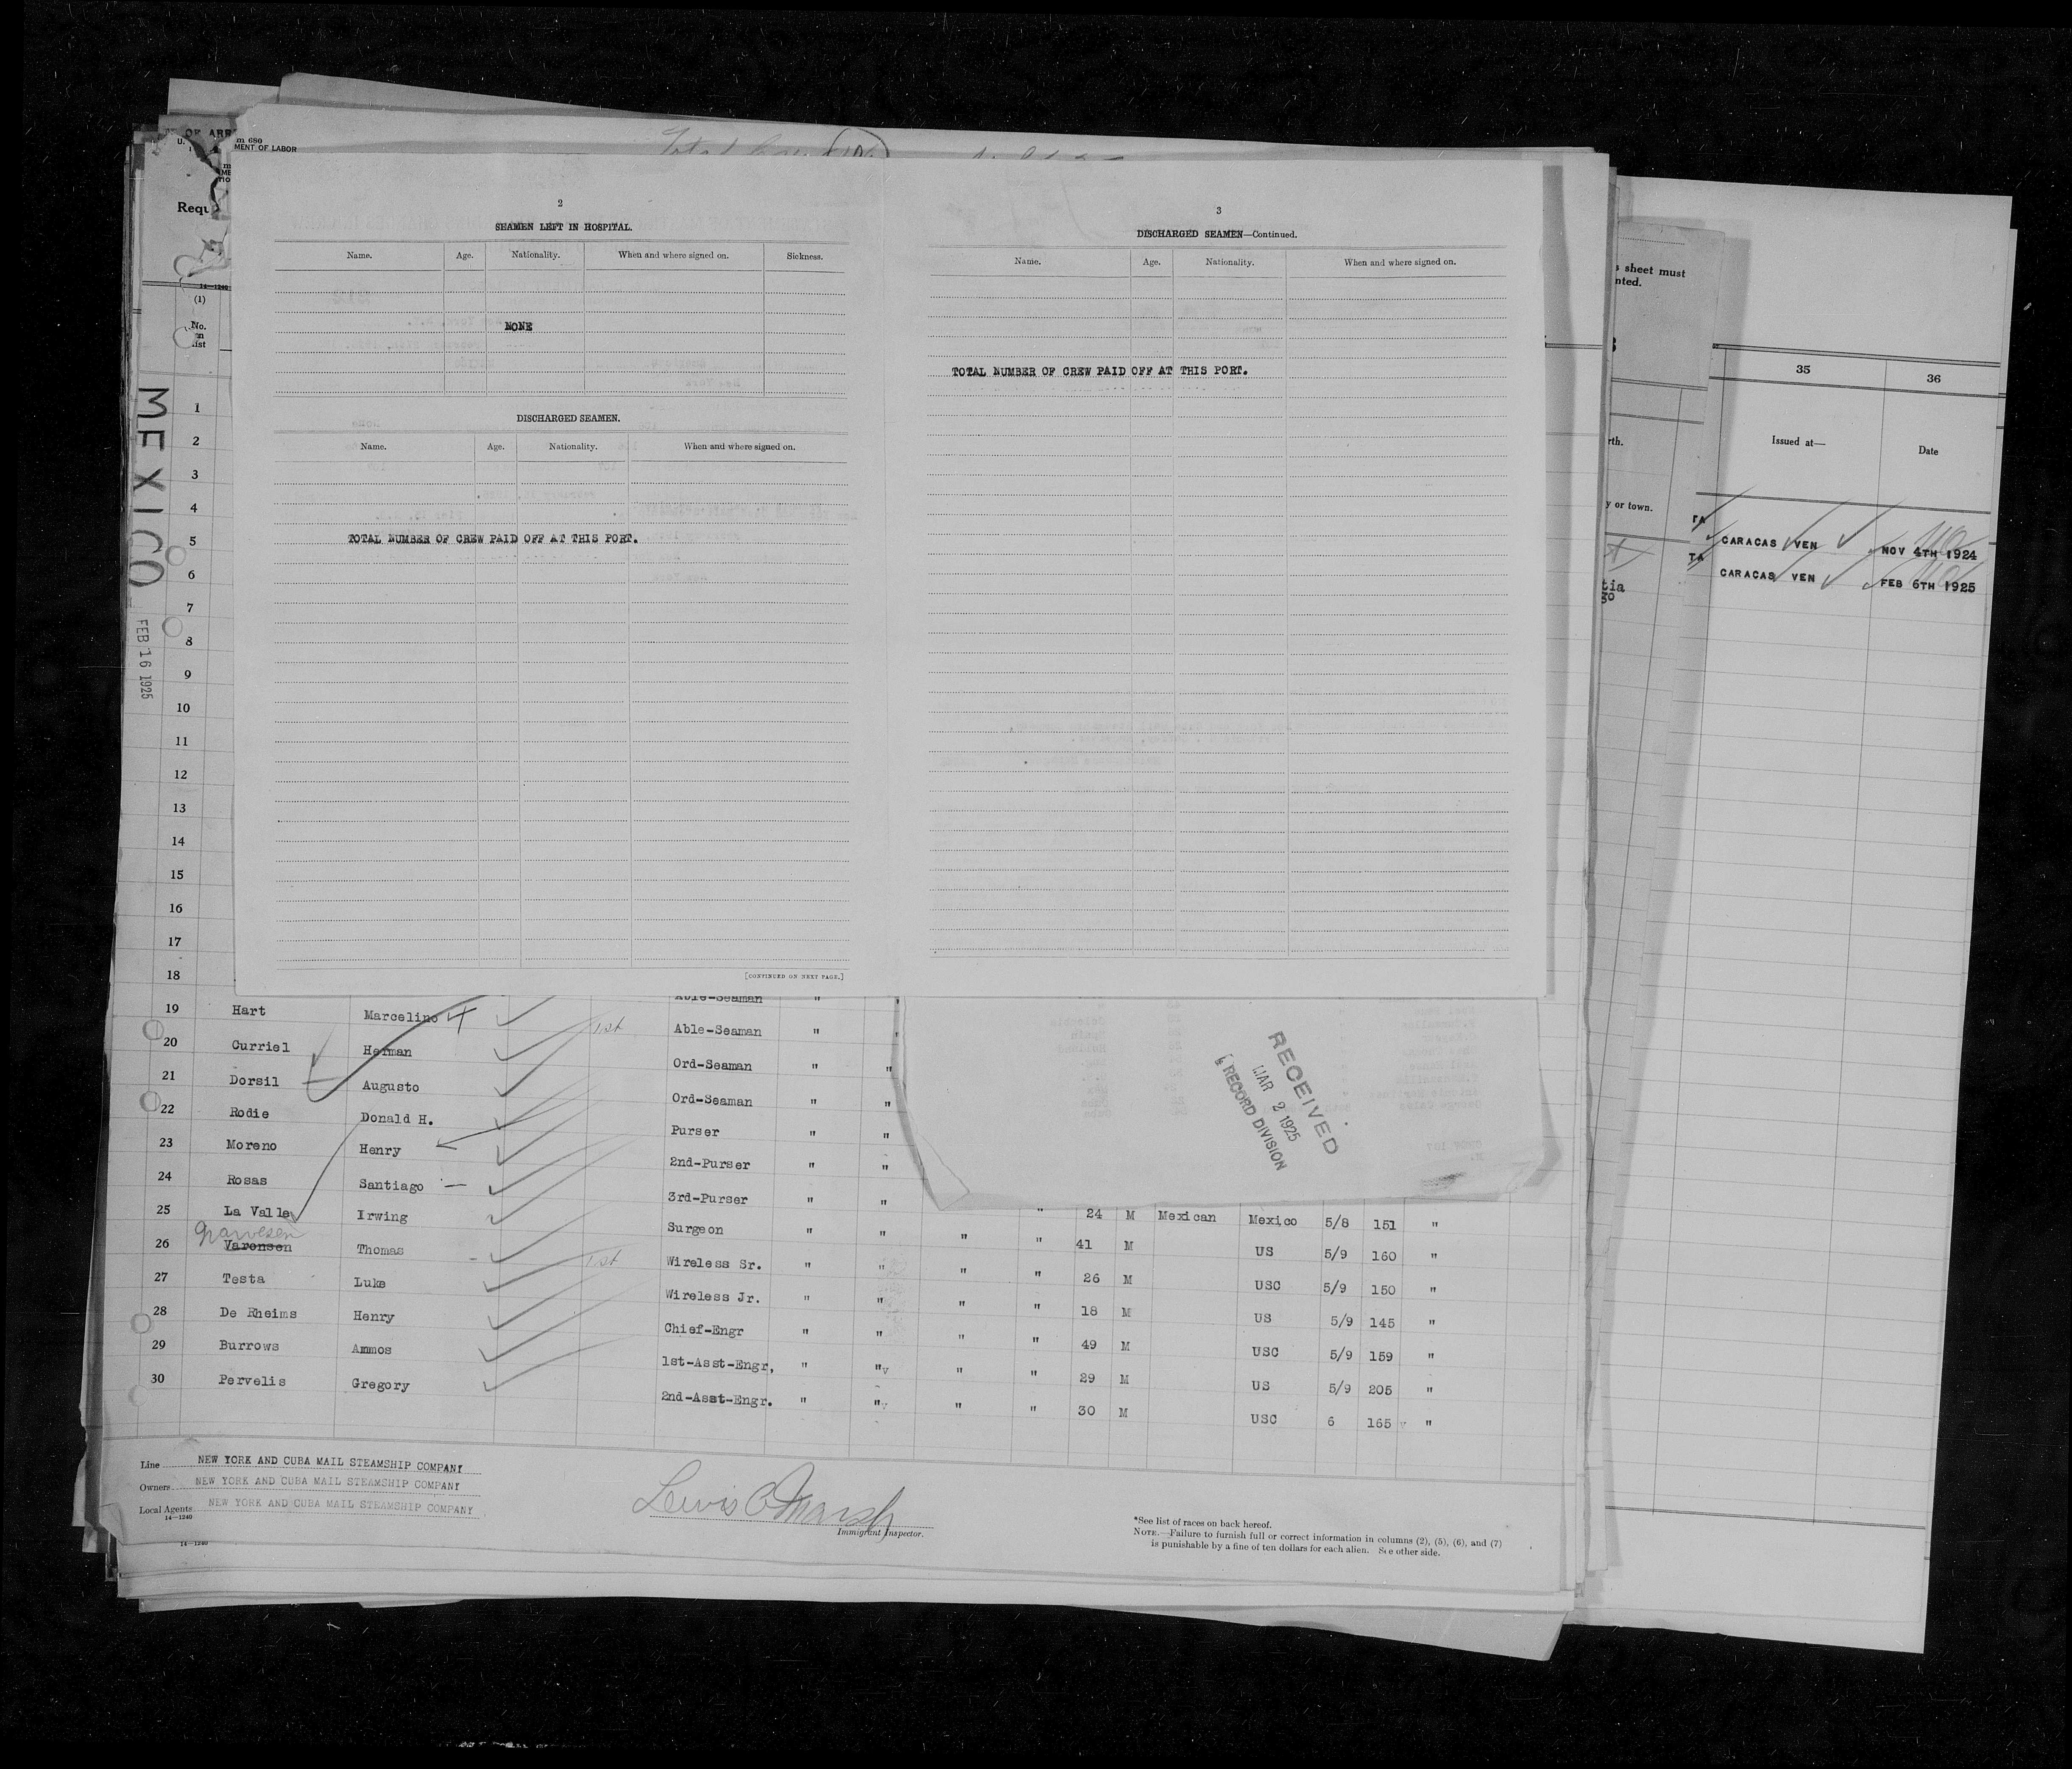 OF ARR
m 680
MENT OF LABOR
Requ
14—1240
(1)
No.
MEXICO
FEB 16 1925
1
2
3
4
5
6
7
8
9
10
11
12
13
14
15
16
17
18
2
SEAMEN LEFT IN HOSPITAL.
Name. Age. Nationality. When and where signed on. Sickness.
NONE
DISCHARGED SEAMEN.
Name. Age. Nationality. When and where signed on.
TOTAL NUMBER OF CREW PAID OFF AT THIS PORT.
[CONTINUED ON NEXT PAGE.]
3
DISCHARGED SEAMEN—Continued.
Name. Age. Nationality. When and where signed on.
TOTAL NUMBER OF CREW PAID OFF AT THIS PORT.
s sheet must
nted.
rth.
y or town.
tia
go
35 36
Issued at— Date
TA CARACAS VEN NOV 4TH 1924
TA CARACAS VEN FEB 6TH 1925
Able-Seaman "
19 Hart Marcelino 1st Able-Seaman "
20 Curriel Herman Ord-Seaman " "
21 Dorsil Augusto Ord-Seaman " "
22 Rodie Donald H. Purser " "
23 Moreno Henry 2nd-Purser " "
24 Rosas Santiago — 3rd-Purser " " " 24 M Mexican Mexico 5/8 151 "
25 La Valle Irwing Surgeon " " " " 41 M US 5/9 160 "
26 Varonsen Thomas 1st Wireless Sr. " " " " 26 M USC 5/9 150 "
27 Testa Luke Wireless Jr. " " " " 18 M US 5/9 145 "
28 De Rheims Henry Chief-Engr " " " " 49 M USC 5/9 159 "
29 Burrows Ammos 1st-Asst-Engr, " " " " 29 M US 5/9 205 "
30 Pervelis Gregory 2nd-Asst-Engr. " " " " 30 M USC 6 165 "
RECEIVED
MAR 2 1925
RECORD DIVISION
Line NEW YORK AND CUBA MAIL STEAMSHIP COMPANY
Owners NEW YORK AND CUBA MAIL STEAMSHIP COMPANY
Local Agents NEW YORK AND CUBA MAIL STEAMSHIP COMPANY
14—1240
14—1240
Lewis C Marsh
Immigrant Inspector.
*See list of races on back hereof.
NOTE.—Failure to furnish full or correct information in columns (2), (5), (6), and (7)
is punishable by a fine of ten dollars for each alien. See other side.